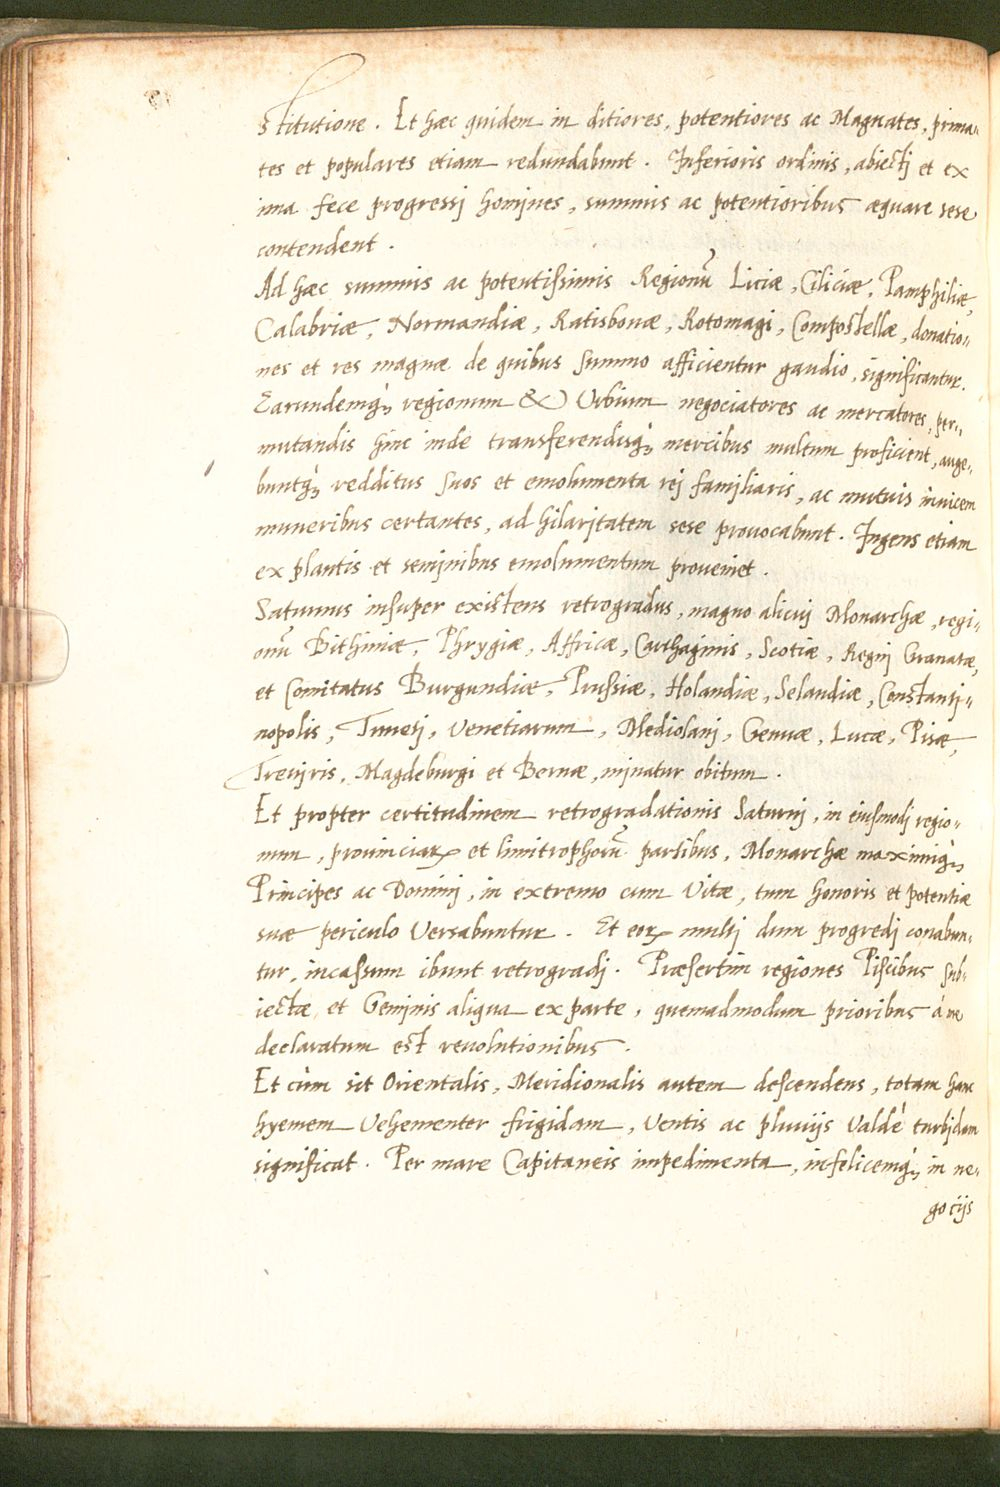 stitutione. Et hæc quidem in ditiores, potentiores ac Magnates, prima-
tes et populares etiam redundabunt. Inferioris ordinis, abiectj et ex
ima fece progressj homines, summis ac potentioribus æquare sese
contendent.
Ad hæc summis ac potentissimis Regionũ Liciæ, Ciliciæ, Pamphiliæ,
Calabriæ, Normandiæ, Ratisbonæ, Rotomagi, Compostellæ, donatio-
nes et res magnæ de quibus summo afficientur gaudio, significantur.
Earundemq; regionum & Vrbium negociatores ac mercatores, per-
mutandis hinc inde transferendisq; mercibus multum proficient, auge-
buntq; redditus suos et emolumenta rej familiaris, ac mutuis inuicem
muneribus certantes, ad hilaritatem sese prouocabunt. Ingens etiam
ex plantis et seminibus emolumentum proueniet.
Saturnus insuper existens retrogradus, magno alicuj Monarchæ, regi-
onũ Bithiniæ, Phrygiæ, Affricæ, Carthaginis, Scotiæ, Regnj Granatæ,
et Comitatus Burgundiæ, Prussiæ, Holandiæ, Selandiæ, Constantj-
nopolis, Tunetj, Venetiarum, Mediolanj, Genuæ, Lucæ, Pisæ,
Treujris, Magdeburgi et Bernæ, minatur obitum.
Et propter certitudinem retrogradationis Saturnj, in eiusmodj regio-
num, prouinciaꝝ et limitrophorũ partibus, Monarchæ maximiq;
Principes ac Dominj, in extremo cum Vitæ, tum honoris et potentiæ
suæ periculo Versabuntur. Et eoꝝ multj dum progredj conabun-
tur, incassum ibunt retrogradj. Præsertim regiones Piscibus sub-
iectæ, et Geminis aliqua ex parte, quemadmodum prioribus á me
declaratum est reuolutionibus.
Et cùm sit Orientalis, Meridionalis autem descendens, totam hanc
hyemem Vehementer frigidam, Ventis ac pluuijs Valdè turbidam
significat. Per mare Capitaneis impedimenta, infelicemq; in ne-
gocijs